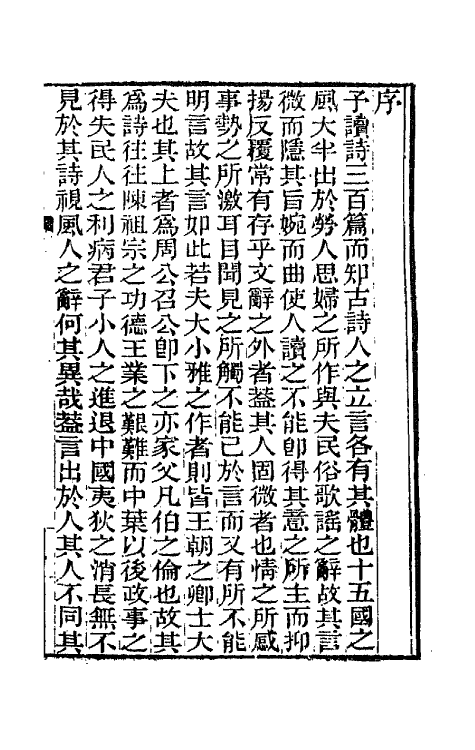 序
予讀詩三百篇而知古詩人之立言各有其體也十五國之
風大半出於勞人思婦之所作與夫民俗歌謠之辭故其言
微而隱其旨婉而曲使人讀之不能卽得其意之所主而抑
揚反覆常有存乎文辭之外者葢其人固微者也情之所感
事勢之所激耳目聞見之所觸不能已於言而又有所不能
明言故其言如此若夫大小雅之作者則皆王朝之卿士大
夫也其上者爲周公召公卽下之亦家父凡伯之倫也故其
爲詩往往陳祖宗之功德王業之艱難而中葉以後政事之
得失民人之利病君子小人之進退中國夷狄之消長無不
見於其詩視風人之辭何其異哉葢言出於人其人不同其